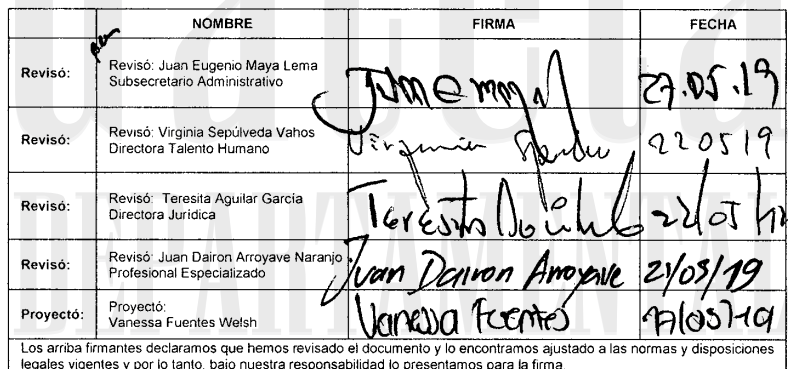 NOMBRE FIRMA FECHA
Revisó: Revisó: Juan Eugenio Maya Lema
Subsecretario Administrativo 27.05.19
Revisó: Revisó: Virginia Sepúlveda Vahos
Directora Talento Humano Virginia 22 05 19
Revisó: Revisó: Teresita Aguilar García
Directora Jurídica Teresita 22/05/
Revisó: Revisó: Juan Dairon Arroyave Naranjo
Profesional Especializado Juan Dairon Arroyave 21/05/19
Proyectó: Proyectó:
Vanessa Fuentes Welsh Vanessa Fuentes 17/05/19
Los arriba firmantes declaramos que hemos revisado el documento y lo encontramos ajustado a las normas y disposiciones
legales vigentes y por lo tanto, bajo nuestra responsabilidad lo presentamos para la firma.